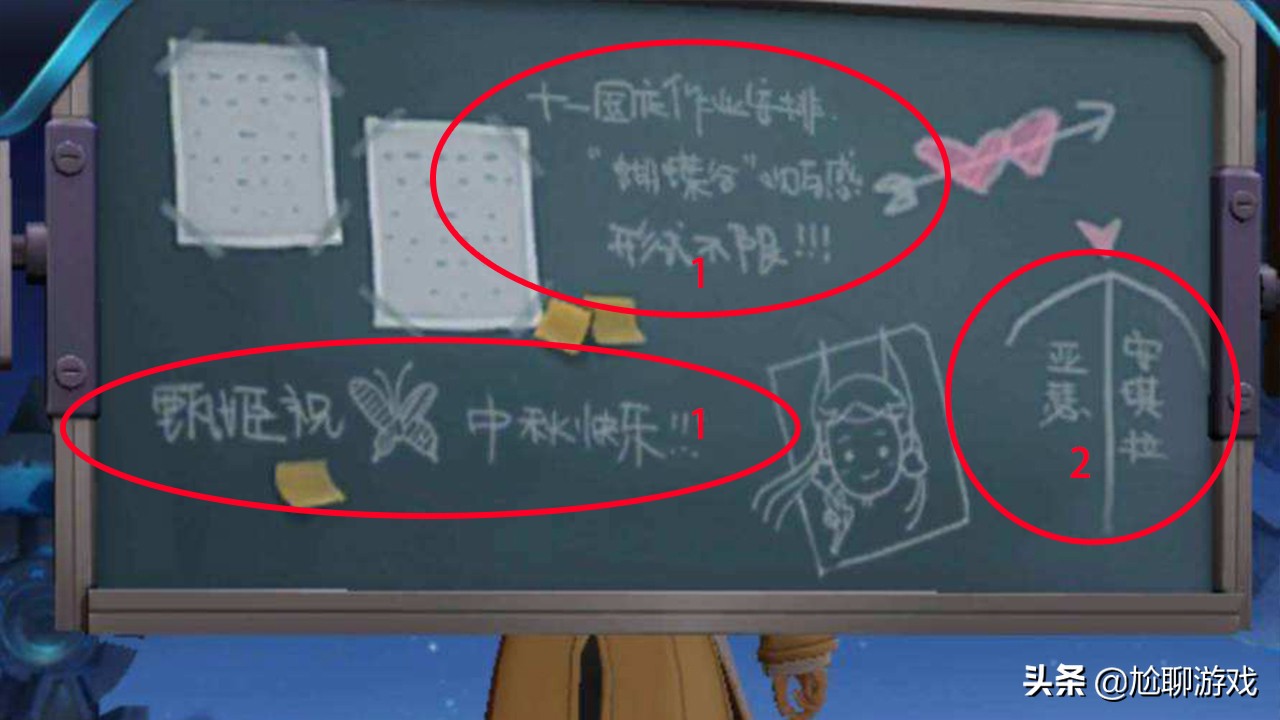 十一国庆作业安排.
"蝴蝶谷"归与感
形式不限!!!
1
甄姬祝 中秋快乐!!!
1
亚瑟
安琪拉
2
头条 @尬聊游戏